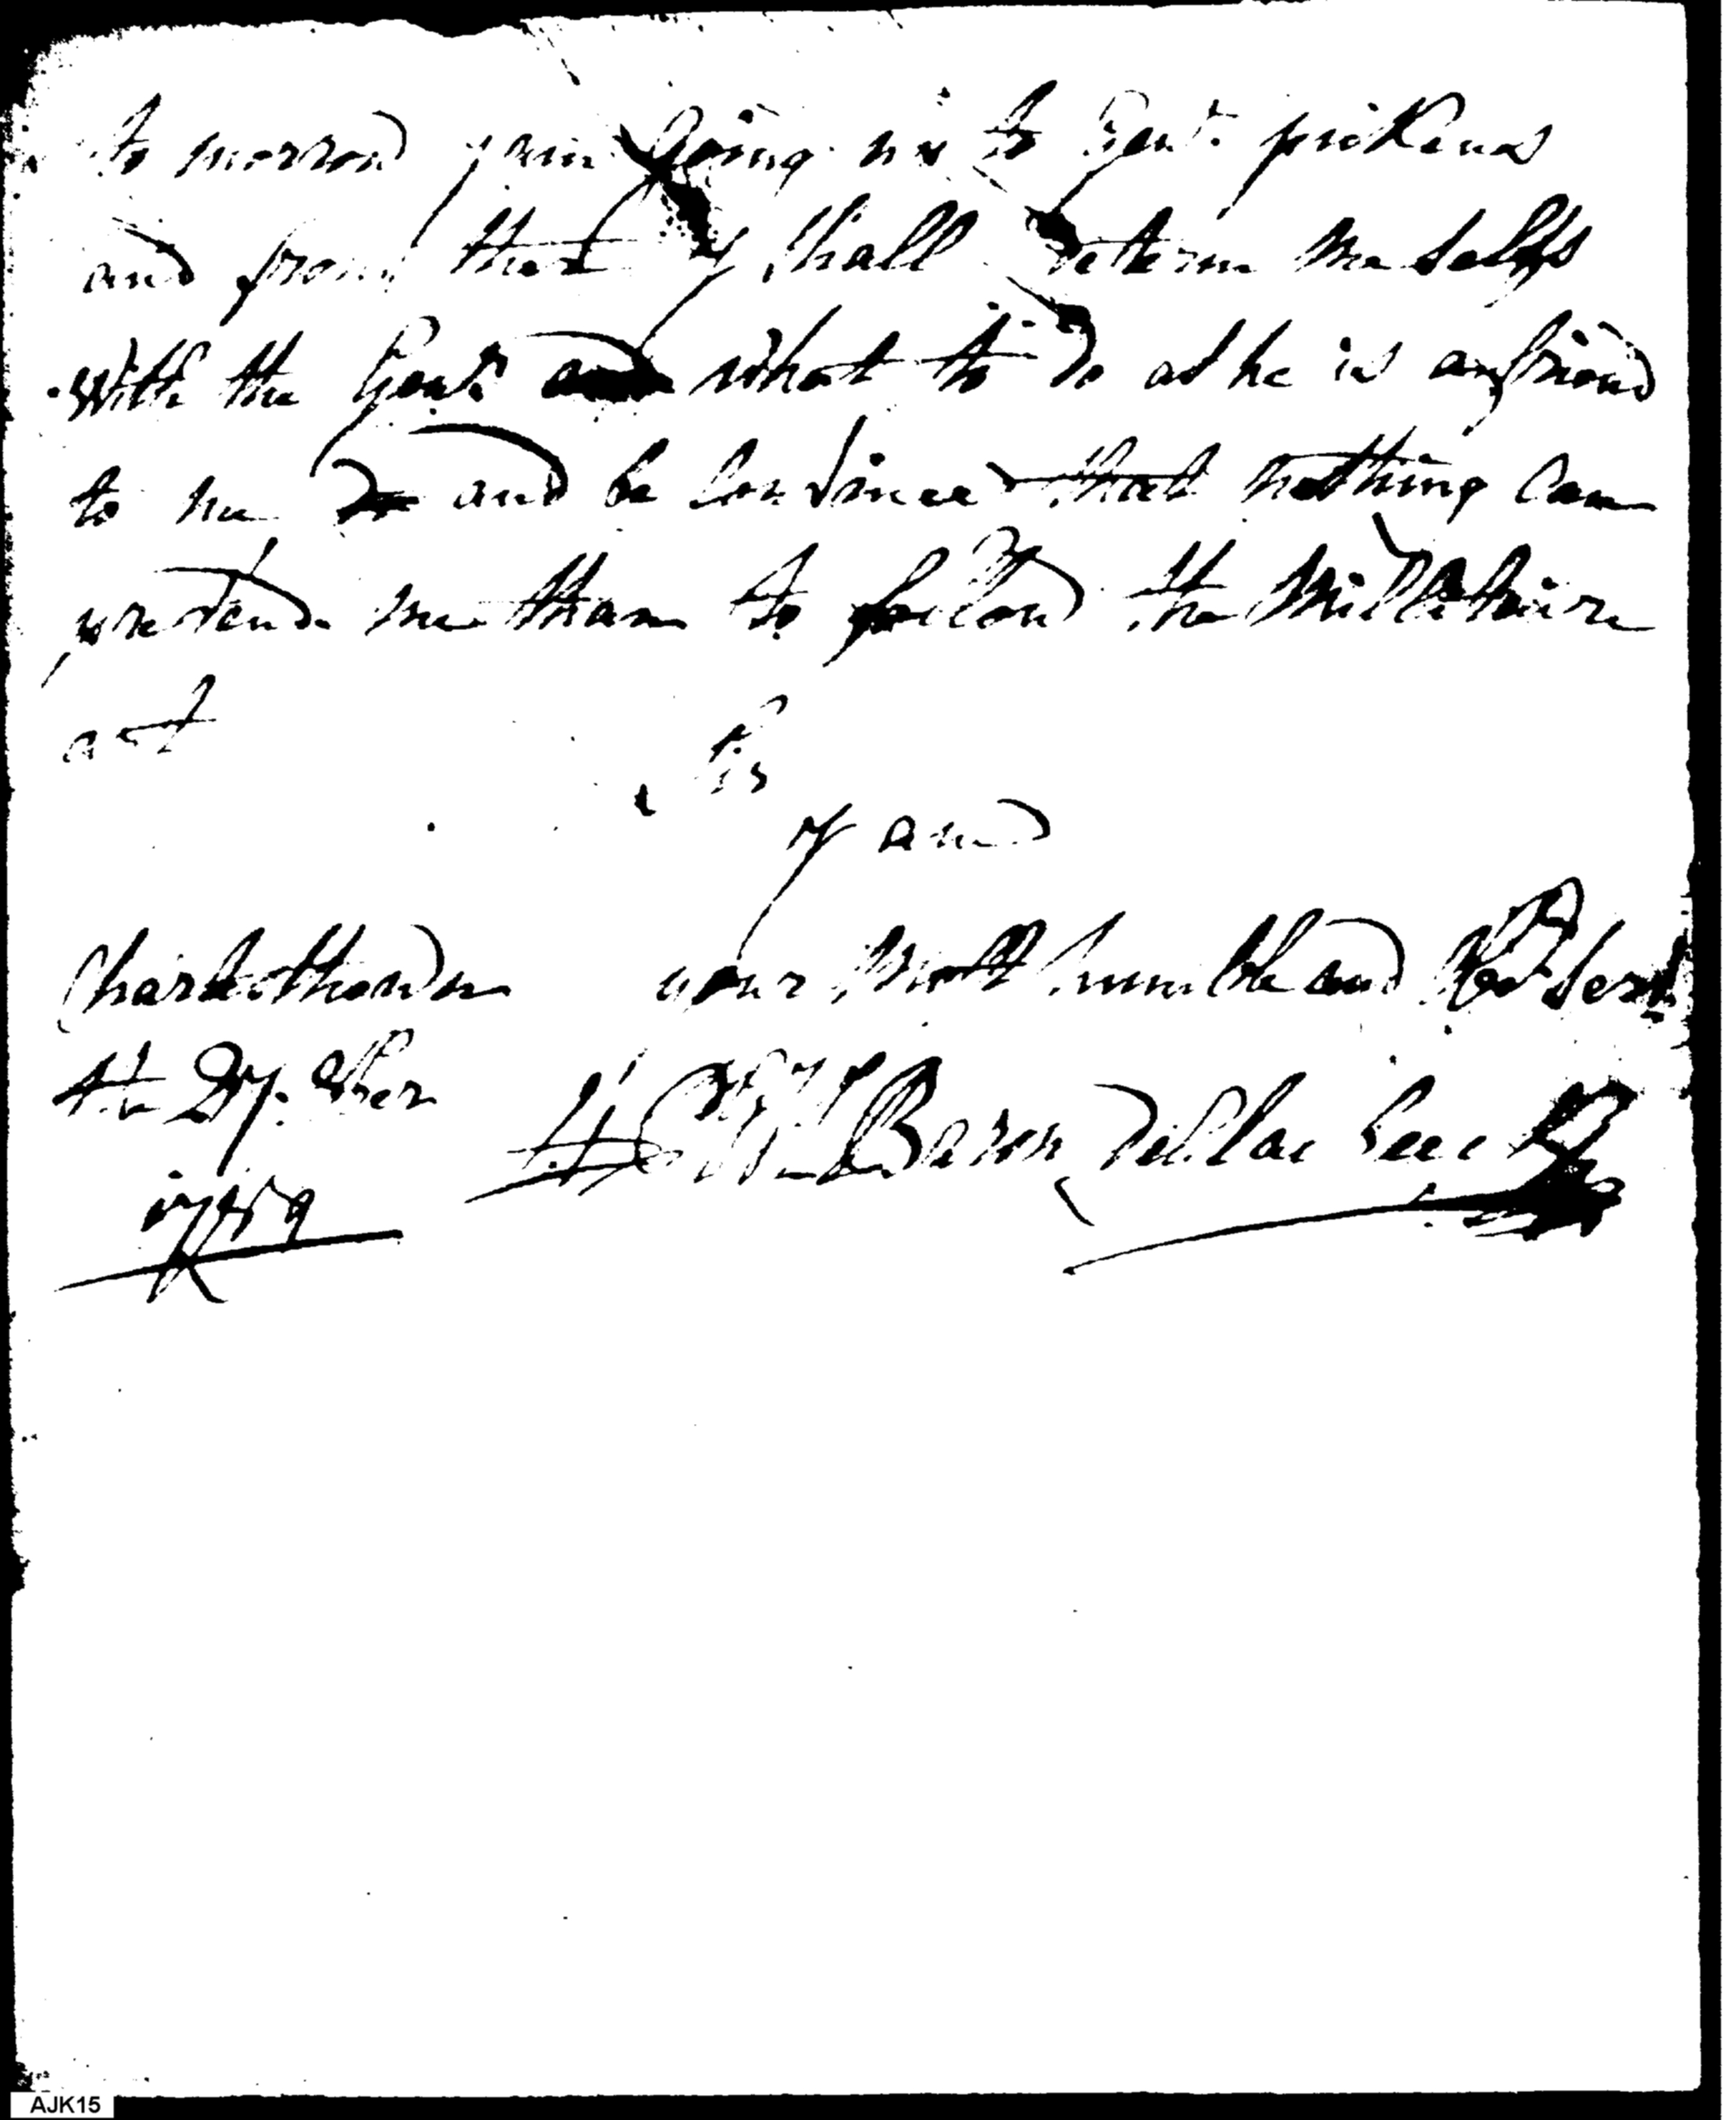 to morrow j am going up to Genl. pickens
and from that y shall determ me selfs
With the Genl and what to do as he is anfriend
to me and be convinced that nothing Can
prevend me than to follow the Millitaire
act
Sir
y am
Charlesthown your Most humble and Obt Sert
the 27. 8ber
1789 Baron
AJK15